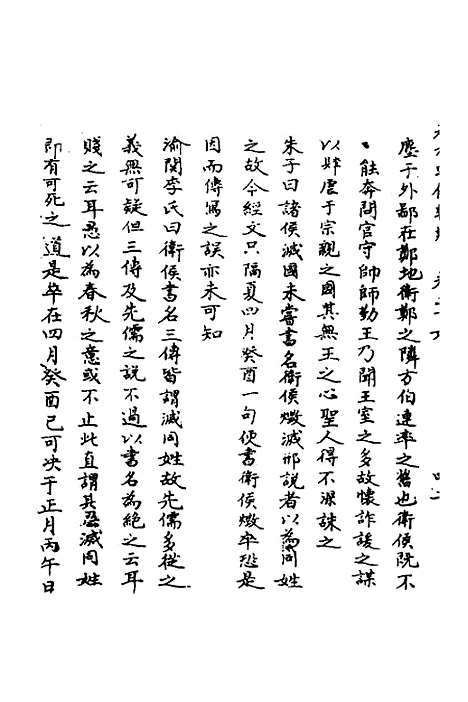 塵于外鄙在鄭地衛鄭之隣方伯連率之舊也衛侯既不
能奔問官守帥師勤王乃聞王室之多故懷詐諼之謀
以肆虐于宗親之國其無王之心聖人得不深誅之
朱子曰諸侯滅國未嘗書名衛侯燬滅邢說者以為同姓
之故今經文只隔夏四月癸酉一句便書衛侯燬卒恐是
因而傳寫之誤亦未可知
渝関李氏曰衛侯書名三傳皆謂滅同姓故先儒多從之
義無可疑但三傳及先儒之說不過以書名為絕之云耳
賤之云耳愚以為春秋之意或不止此直謂其惡滅同姓
即有可死之道是卒在四月癸酉已可決于正月丙午日